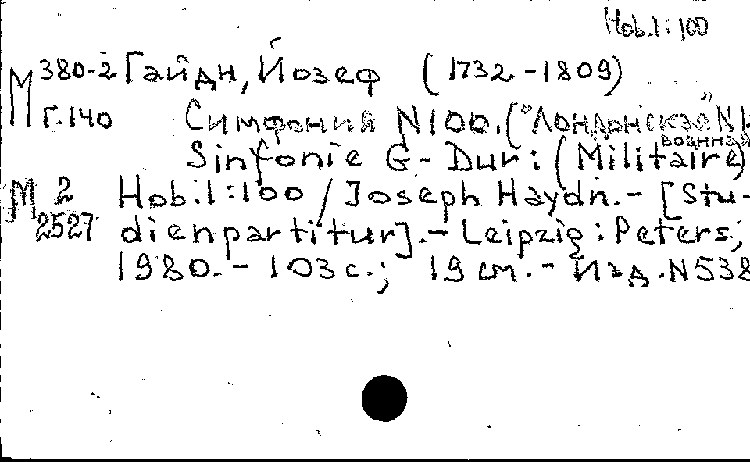 Hob.1:100
М 380-2 Гайдн, Йозеф (1732-1809)
Г.140 Симфония N100. ("Лондонская" N
военная
Sinfonie G-Dur: (Militaire)
М 2 Hob.1:100 / Joseph Haydn. - [Stu-
2527 dienpartitur]. - Leipzig: Peters,
1980. - 103 с.; 19 см. - Изд. N538